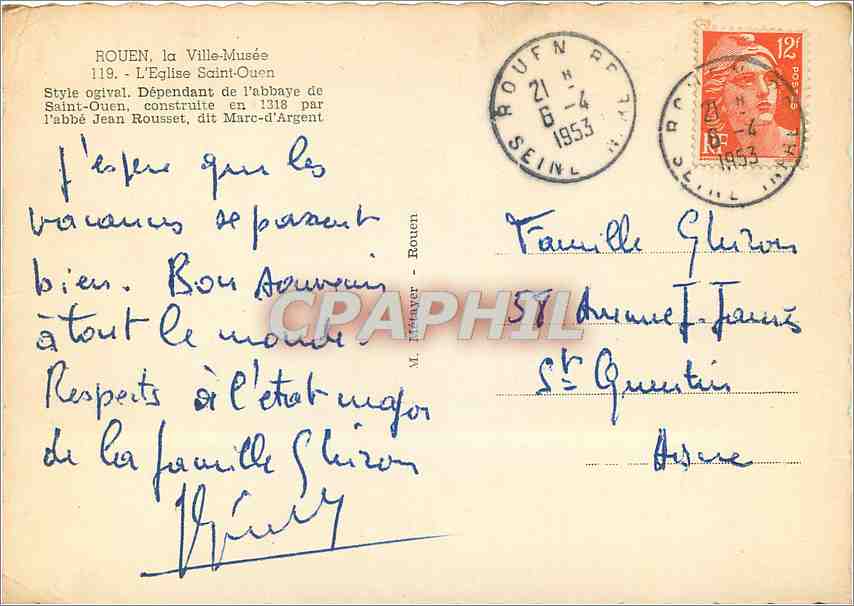 ROUEN, la Ville-Musée
119. - L'Eglise Saint-Ouen
Style ogival. Dépendant de l'abbaye de
Saint-Ouen, construite en 1318 par
l'abbé Jean Rousset, dit Marc-d'Argent
J'espère que les
vacances se passent
bien. Bon souvenir
à tout le monde.
Respects à l'état-major
de la famille Ghiron
M. Métayer - Rouen
CPAPHIL
ROUEN
21 H
6 - 4
1953
SEINE
12F
POSTES
RF
21 H
6 - 4
1953
SEINE
Famille Ghiron
58 Avenue J. Jaurès
St Quentin
Aisne